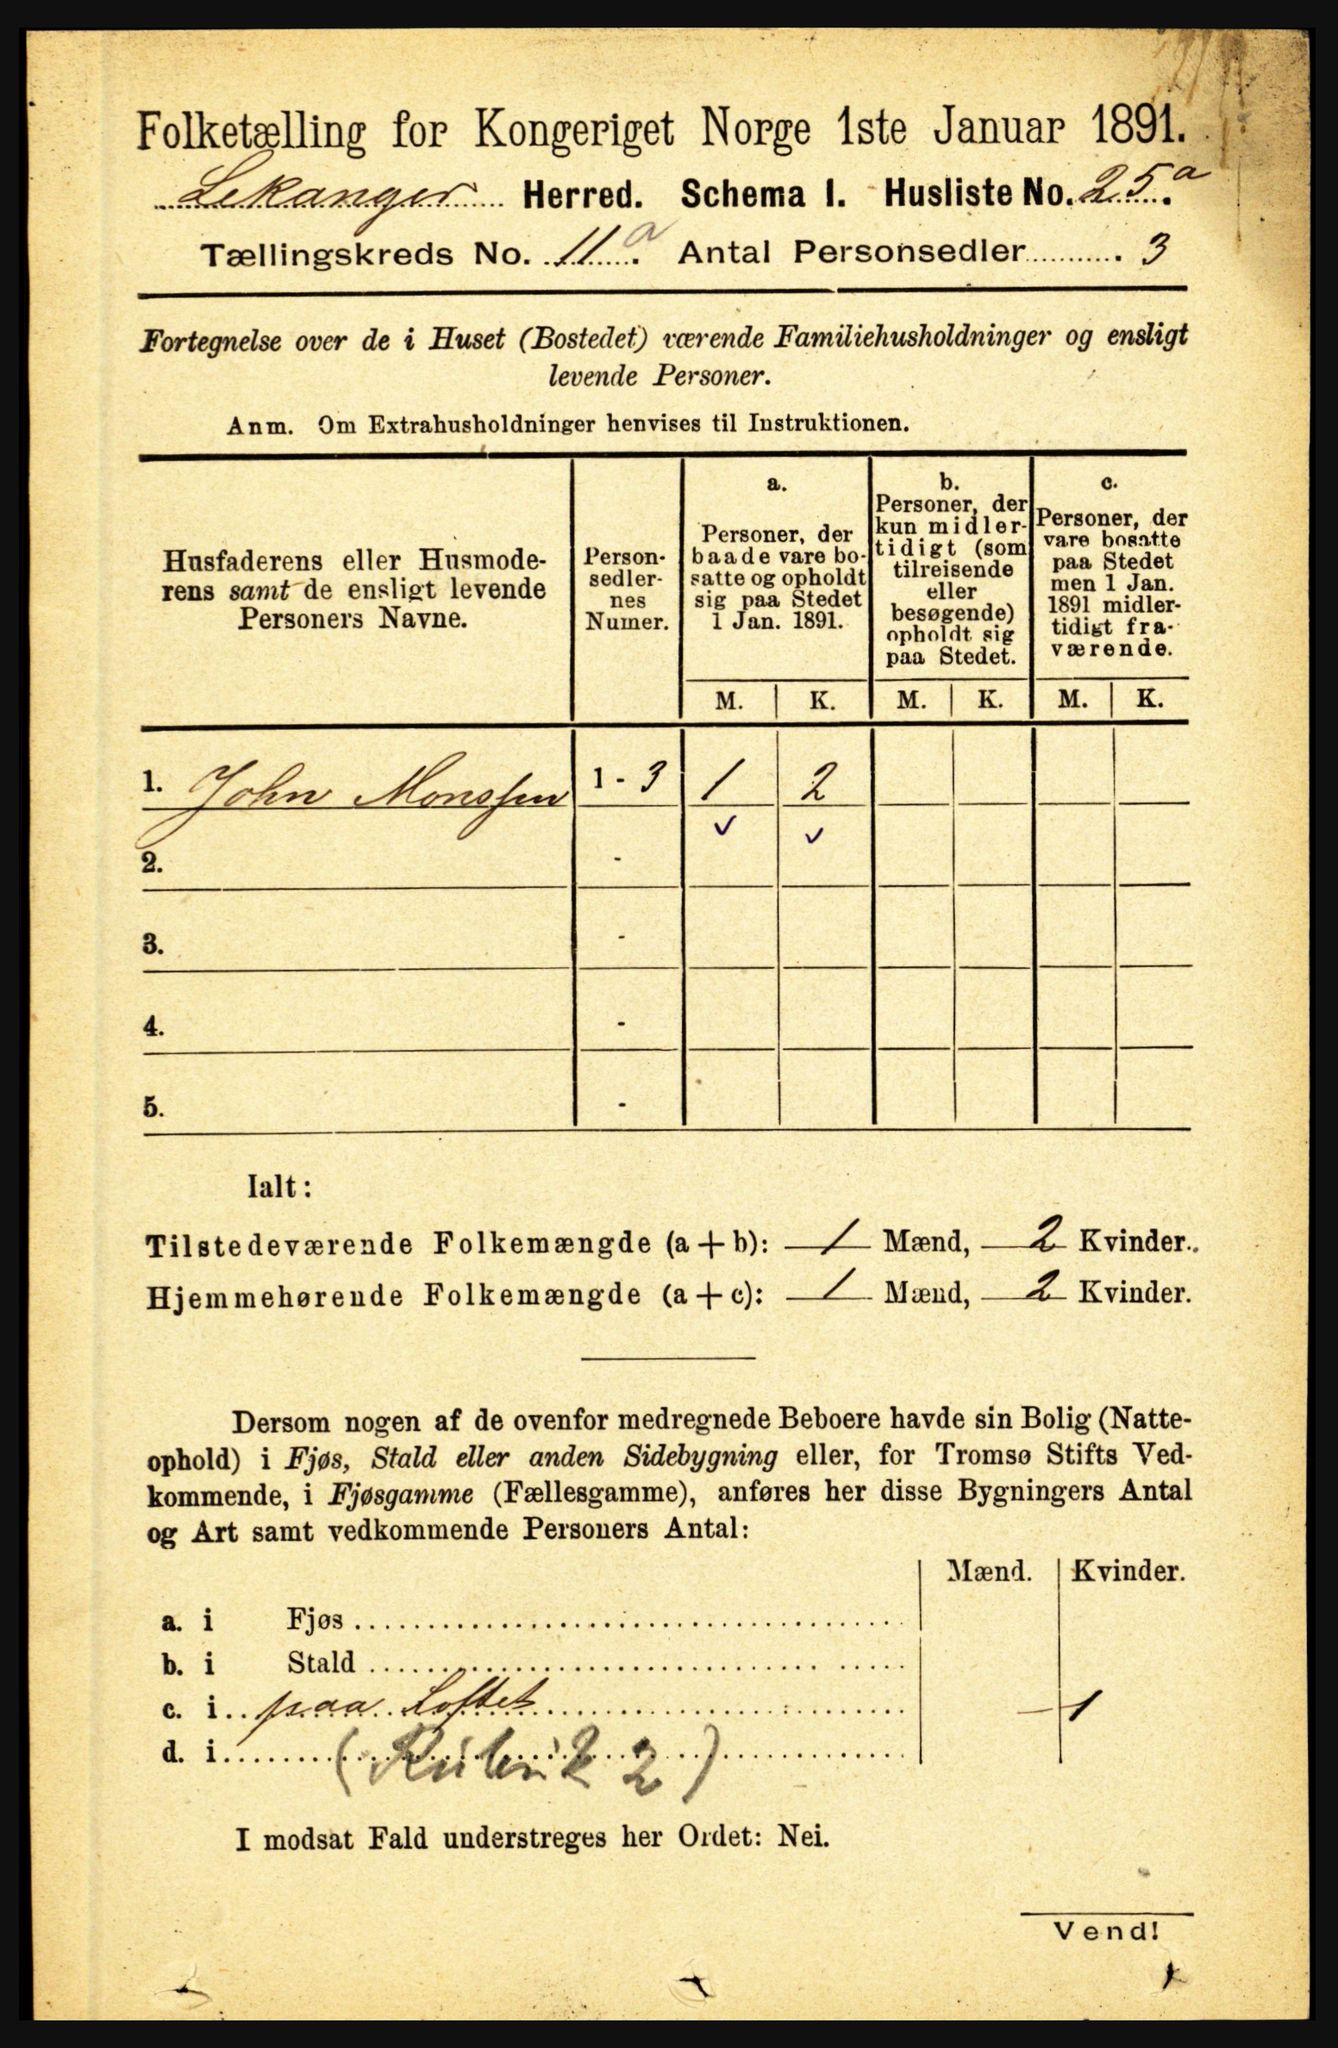 Folketælling for Kongeriget Norge 1ste Januar 1891.
Lekanger Herred. Schema I. Husliste No. 25a.
Tællingskreds No. 11a. Antal Personsedler . 3
Fortegnelse over de i Huset (Bostedet) værende Familiehusholdninger og ensligt
levende Personer.
Anm. Om Extrahusholdninger henvises til Instruktionen.
Husfaderens eller Husmode-
rens samt de ensligt levende
Personers Navne.
Person-
sedler-
nes
Numer.
a.
Personer, der
baade vare bo-
satte og opholdt
sig paa Stedet
1 Jan. 1891.
b.
Personer, der
kun midler-
tidigt (som
tilreisende
eller
besøgende)
opholdt sig
paa Stedet.
c.
Personer, der
vare bosatte
paa Stedet
men 1 Jan.
1891 midler-
tidigt fra-
værende.
M. K. M. K. M. K.
1. John Monssen 1 - 3 1 2
2. -
3. -
4. -
5. -
Ialt:
Tilstedeværende Folkemængde (a + b): 1 Mænd, 2 Kvinder.
Hjemmehørende Folkemængde (a + c): 1 Mænd, 2 Kvinder.
Dersom nogen af de ovenfor medregnede Beboere havde sin Bolig (Natte-
ophold) i Fjøs, Stald eller anden Sidebygning eller, for Tromsø Stifts Ved-
kommende, i Fjøsgamme (Fællesgamme), anføres her disse Bygningers Antal
og Art samt vedkommende Personers Antal:
Mænd. Kvinder.
a. i Fjøs
b. i Stald
c. i paa Loftet - 1
d. i (Rubrik 2)
I modsat Fald understreges her Ordet: Nei.
Vend!